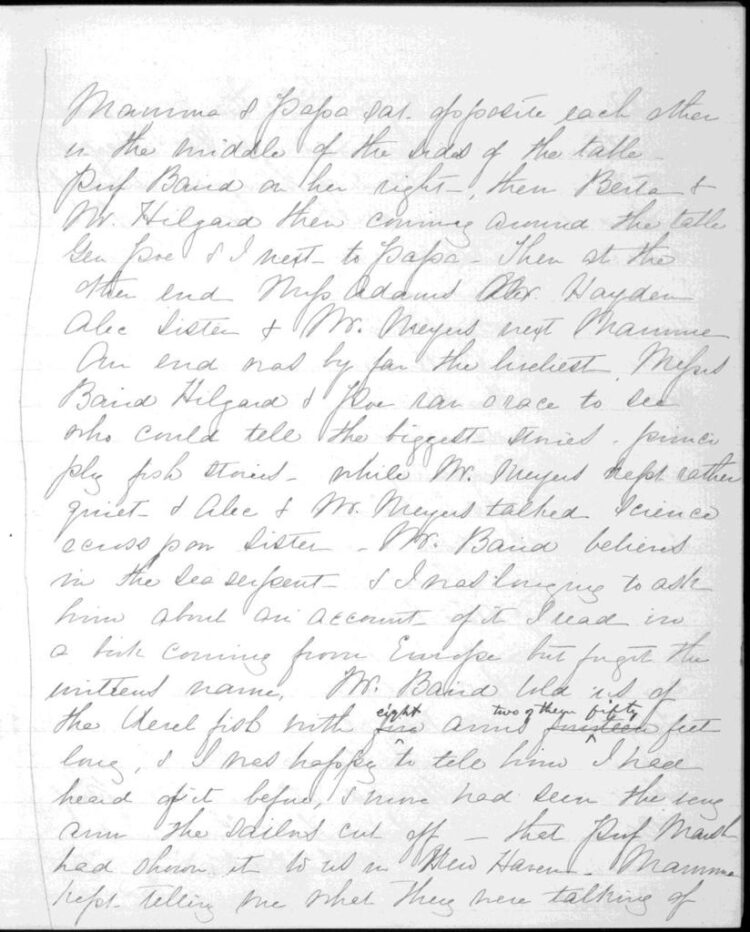 Mamma & Papa sat opposite each other
in the middle of the sides of the table -
Prof Baird on her right -, then Berta &
Mr. Hilgard then coming around the table
Gen Poe & I next to Papa - Then at the
other end Miss Adams Dr. Hayden
Alec Sister & Mr. Meyers next Mamma
Our end was by far the liveliest. Messrs
Baird Hilgard & Poe ran a race to see
who could tell the biggest stories - princi
ply fish stories - while Mr. Meyers kept rather
quiet - & Alec & Mr. Meyers talked science
across poor Sister - Mr. Baird believes
in the sea serpent - & I was longing to ask
him about an account of it I read in
a book coming from Europe but forgot the
writers name. Mr. Baird told us of
the Devel fish with five eight arms two of them fifteen fifty feet
long, & I was happy to tell him I had
heard of it before, & more had seen the very
arm the sailors cut off - that Prof Marsh
had shown it to us in New Haven - Mamma
kept telling me what they were talking of